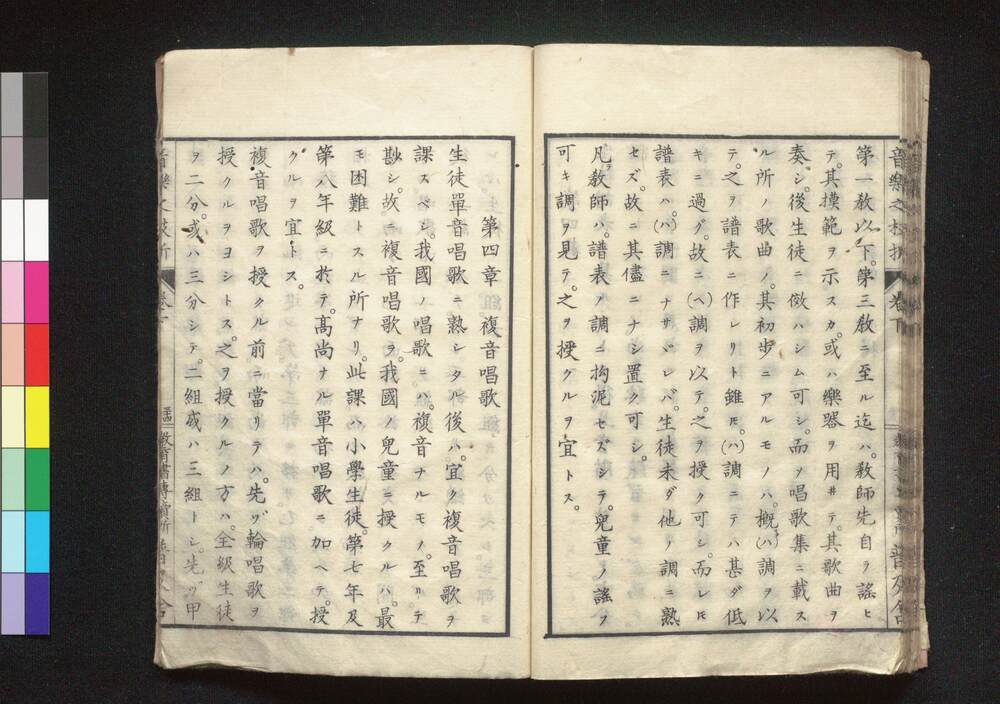 第一敎以下。第三敎ニ至ル迄ハ。敎師先自ラ謠ヒ
テ。其模範ヲ示スカ。或ハ樂器ヲ用井テ。其歌曲ヲ
奏シ。後生徒ニ倣ハシム可シ。而ノ唱歌集ニ載ス
ル所ノ歌曲ノ。其初步ニアルモノハ。槪(ハ)調ヲ以
テ。之ヲ譜表ニ作レリト雖𪜈。(ハ)調ニテハ甚ダ低
キニ過グ。故ニ(ヘ)調ヲ以テ。之ヲ授ク可シ。而レ𪜈
譜表ハ。(ハ)調ニナサヾレバ。生徒未ダ他ノ調ニ熟
セズ。故ニ其儘ニナシ置ク可シ。
凡敎師ハ。譜表ノ調ニ拘泥セズシテ。兒童ノ謠フ
可キ調ヲ見テ。之ヲ授クルヲ宜トス。
第四章 複音唱歌
生徒單音唱歌ニ熟シタル後ハ。宜ク複音唱歌ヲ
課スベシ。我國ノ唱歌ニハ。複音ナルモノ。至リテ
尠シ。故ニ複音唱歌ヲ。我國ノ兒童ニ授クルハ。最
モ困難トスル所ナリ。此課ハ小學生徒。第七年及
第八年級ニ於テ。高尚ナル單音唱歌ニ加ヘテ。授
クルヲ宜トス。
複音唱歌ヲ授クル前ニ當リテハ。先ヅ輪唱歌ヲ
授クルヲヨシトス。之ヲ授クルノ方ハ。全級生徒
ヲ二分。或ハ三分シテ。二組或ハ三組トシ。先ヅ甲